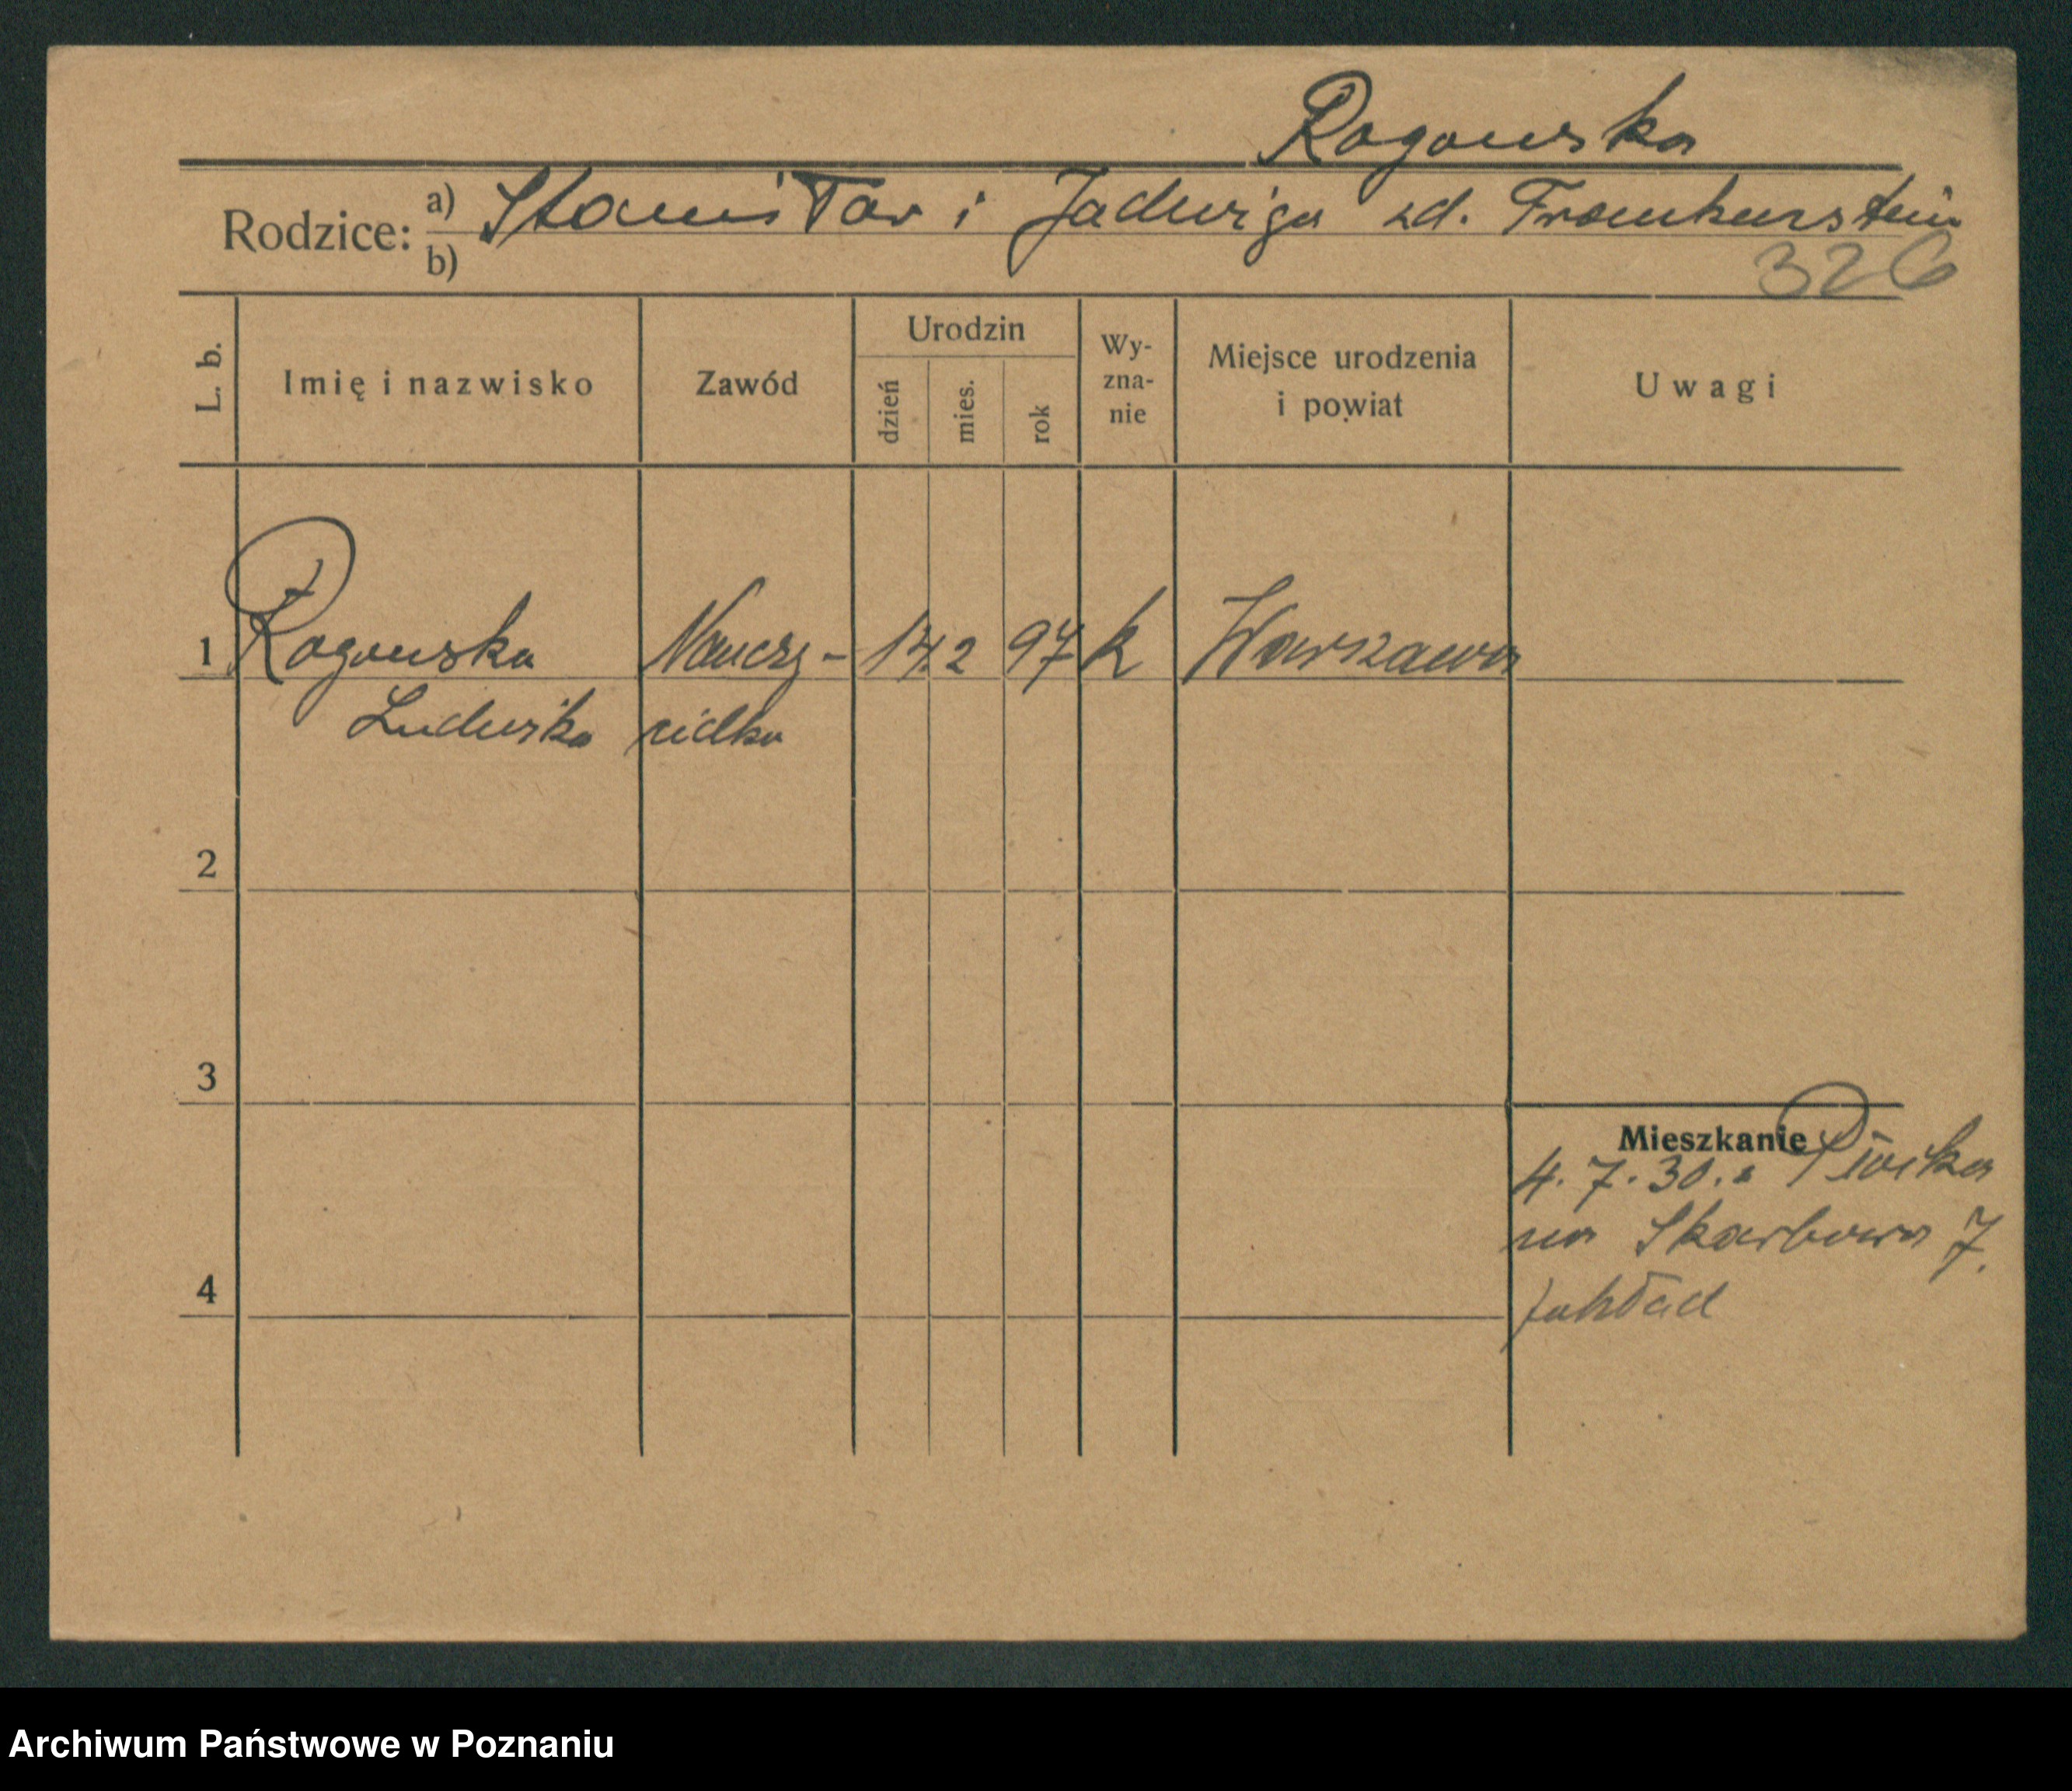 Rogowska
Rodzice: a) Stanisław i Jadwiga zd. Frankenstein
b)
326
L. b. Imię i nazwisko Zawód Urodzin dzień mies. rok Wy-zna-nie Miejsce urodzenia i powiat Uwagi
1 Rogowska Nauczy- 14. 2 97 k Warszawa
Ludwika cielka
2
3
Mieszkanie
4. 7. 30. z
na Skarbowa 7.
4
zakład
Archiwum Państwowe w Poznaniu